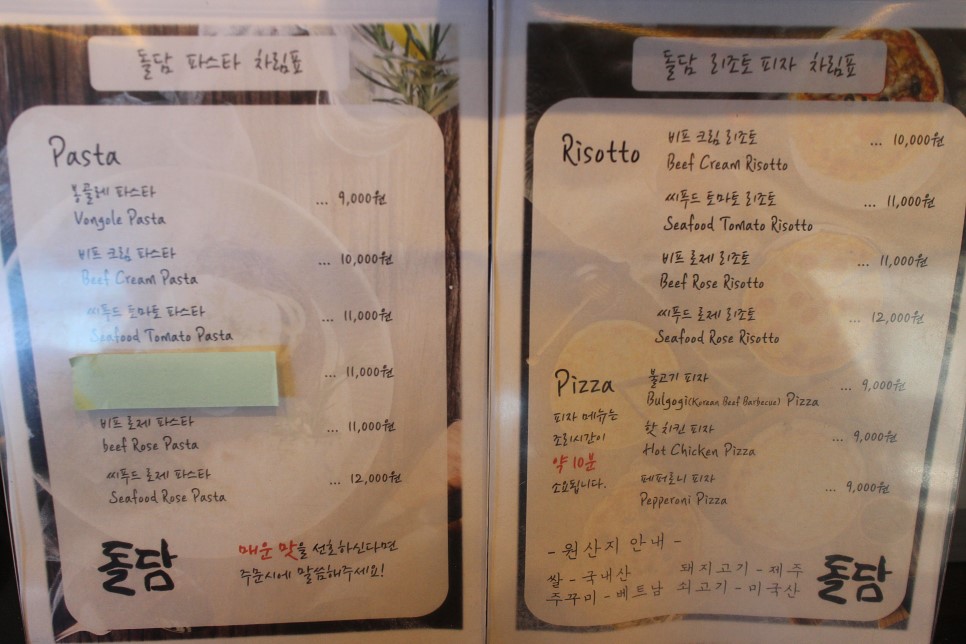 돌담 파스타 차림표
Pasta
봉골레 파스타 ... 9,000원
Vongole Pasta
비프 크림 파스타 ... 10,000원
Beef Cream Pasta
씨푸드 토마토 파스타 ... 11,000원
Seafood Tomato Pasta
... 11,000원
비프 로제 파스타 ... 11,000원
beef Rose Pasta
씨푸드 로제 파스타 ... 12,000원
Seafood Rose Pasta
돌담
매운 맛을 선호하신다면
주문시에 말씀해주세요!
돌담 리조토 피자 차림표
Risotto
비프 크림 리조토 ... 10,000원
Beef Cream Risotto
씨푸드 토마토 리조토 ... 11,000원
Seafood Tomato Risotto
비프 로제 리조토 ... 11,000원
Beef Rose Risotto
씨푸드 로제 리조토 ... 12,000원
Seafood Rose Risotto
Pizza
피자 메뉴는
조리시간이
약 10분
소요됩니다.
불고기 피자 ... 9,000원
Bulgogi(Korean Beef Barbecue) Pizza
핫 치킨 피자 ... 9,000원
Hot Chicken Pizza
페퍼로니 피자 ... 9,000원
Pepperoni Pizza
- 원산지 안내 -
쌀 - 국내산 돼지고기 - 제주
주꾸미 - 베트남 쇠고기 - 미국산
돌담